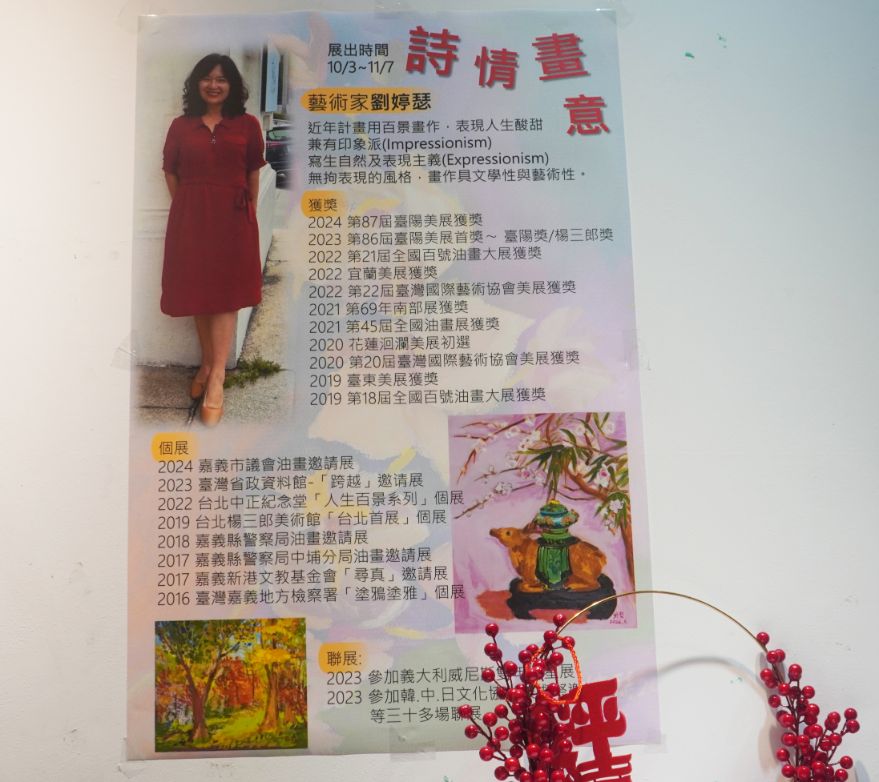 展出時間
10/3~11/7
詩情畫意
藝術家劉婷瑟
近年計畫用百景畫作，表現人生酸甜
兼有印象派(Impressionism)
寫生自然及表現主義(Expressionism)
無拘表現的風格，畫作具文學性與藝術性。
獲獎
2024 第87屆臺陽美展獲獎
2023 第86屆臺陽美展首獎～ 臺陽獎/楊三郎獎
2022 第21屆全國百號油畫大展獲獎
2022 宜蘭美展獲獎
2022 第22屆臺灣國際藝術協會美展獲獎
2021 第69年南部展獲獎
2021 第45屆全國油畫展獲獎
2020 花蓮洄瀾美展初選
2020 第20屆臺灣國際藝術協會美展獲獎
2019 臺東美展獲獎
2019 第18屆全國百號油畫大展獲獎
個展
2024 嘉義市議會油畫邀請展
2023 臺灣省政資料館-「跨越」邀请展
2022 台北中正紀念堂「人生百景系列」個展
2019 台北楊三郎美術館「台北首展」個展
2018 嘉義縣警察局油畫邀請展
2017 嘉義縣警察局中埔分局油畫邀請展
2017 嘉義新港文教基金會「尋真」邀請展
2016 臺灣嘉義地方檢察署「塗鴉塗雅」個展
聯展:
2023 參加義大利威尼斯雙 展
2023 參加韓.中.日文化協
等三十多場聯展
平